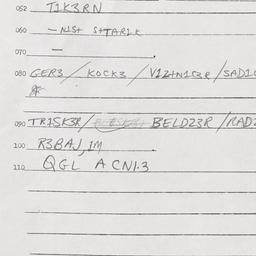 052 T1K3RN
060 -N1S+ S+TAR1K
070 —
080 GER3 / KOCK3 / V1Z+N1C3R / SAD1C
090 TR1SK3R / BELDZ3R / RADZ
100 R3BAJ, 1M
110 QGL A CN1.3